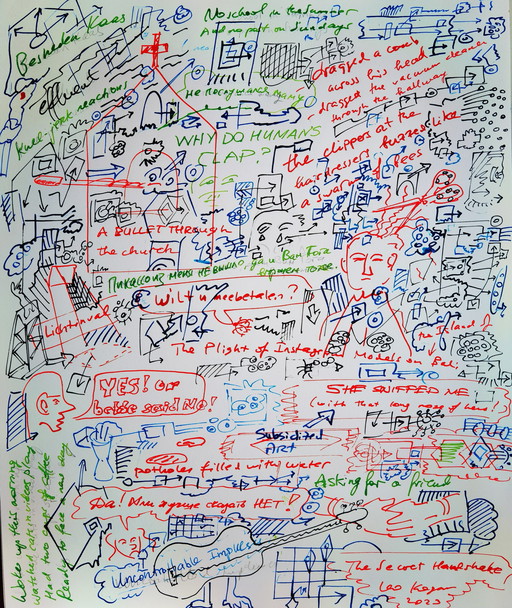 Bescheiden Kaas
No school in the summer
And no part on Sundays
effluent
Knee-jerk reactions
WHY DO HUMANS
CLAP?
dragged a comb
across his head
dragged the vacuum cleaner
through the hallway
the clippers at the
hairdressers buzzed like
a swarm of bees
A BULLET THROUGH
the church
Пикассо из меня не вышло, да и Ван Гога
тоже.
Wilt u meebetalen?
Lichtinval
The Plight of Instagram
Models on Bali,
the Island of
YES! Or
better said NO!
SHE SNIPPED ME
(with that long nose of hers!)
Subsidized
Art
potholes filled with water
Asking for a friend
Да! Или лучше сказать НЕТ!
Woke up this morning
Watched
Had two cups of coffee
Ready to face a new day
Uncontrollable Impulse
The Secret Handshake
Leo Kogan